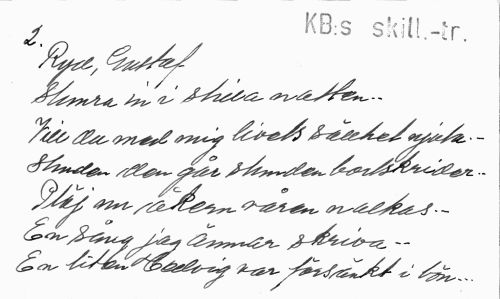 KB:s skill.-tr.
2.
Ryde, Gustaf
Slumra in i stilla natten--
Vill du med mig livets sällhet njuta--
Stunden den går stunden bortskrider--
Plöj nu åkern våren nalkas--
En sång jag ämnar skriva--
En liten Hedvig var försänkt i bön...